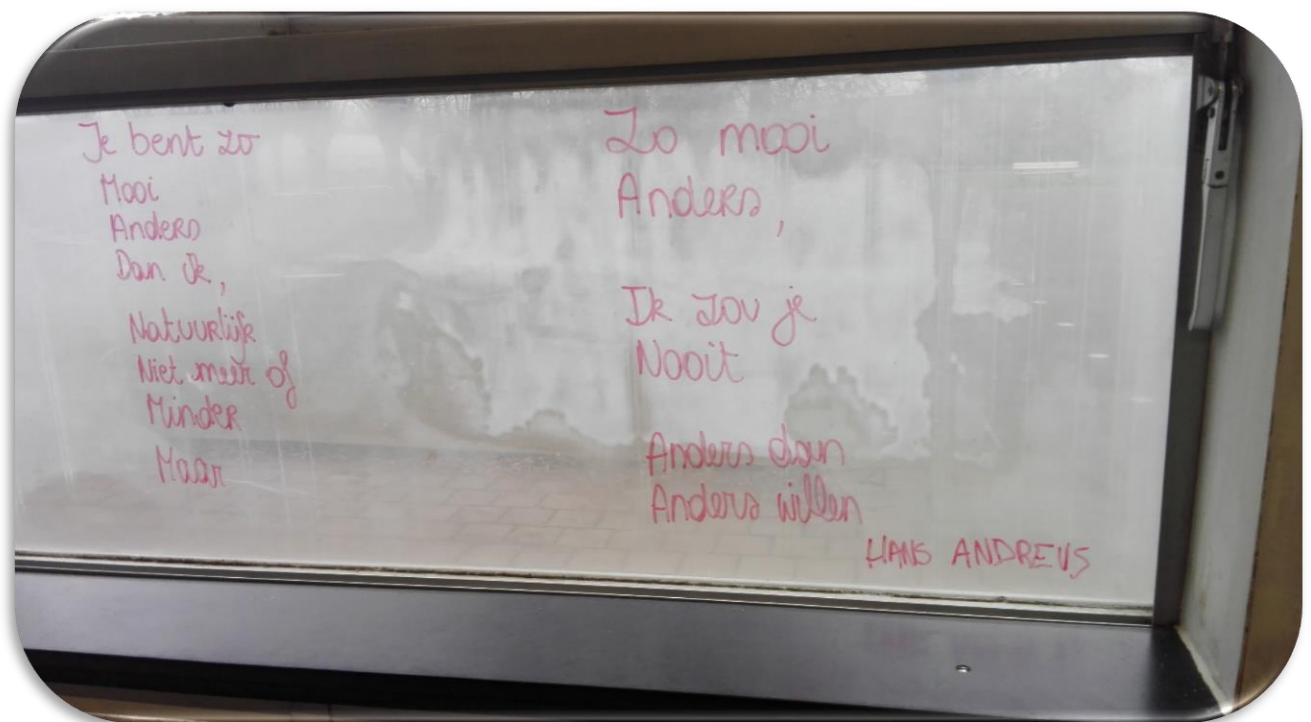 Je bent zo
Mooi
Anders
Dan ik,
Natuurlijk
Niet meer of
Minder
Maar
Zo mooi
Anders,
Ik zou je
Nooit
Anders dan
Anders willen
HANS ANDREUS